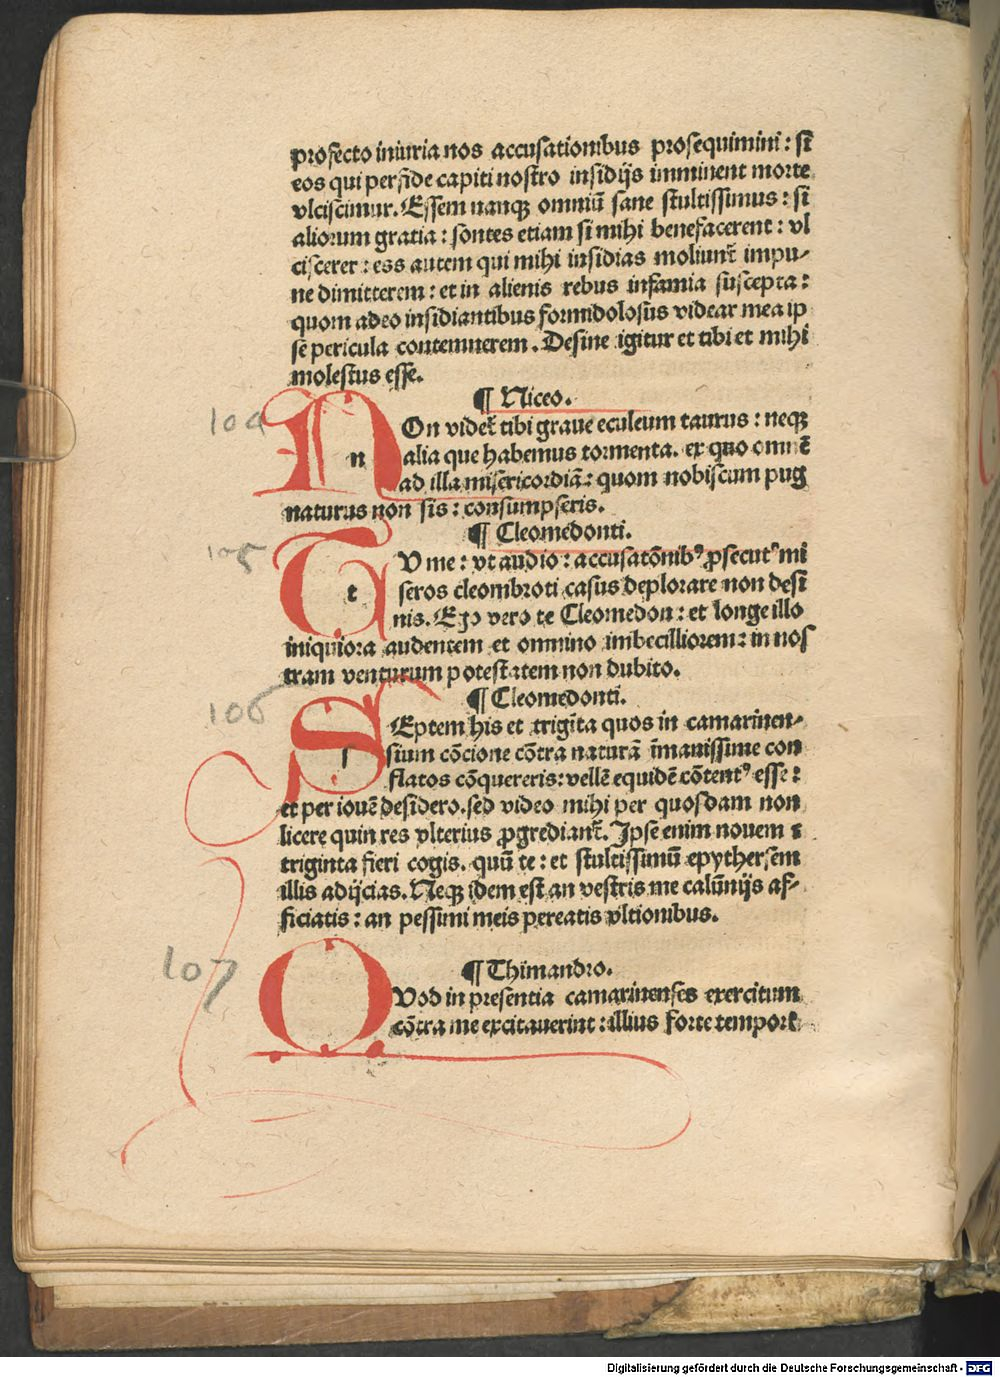 profecto iniuria nos accusationibus prosequimini: si
eos qui perfide capiti nostro insidijs imminent morte
vlciscimur. Essem nanqꝫ omniū sane stultissimus: si
aliorum gratia: sontes etiam si mihi benefacerent: vl
ciscerer: eos autem qui mihi insidias moliunt̄ impu-
ne dimitterem: et in alienis rebus infamia suscepta:
quom adeo insidiantibus formidolosus videar mea ip
se pericula contemnerem. Desine igitur et tibi et mihi
molestus esse.
¶ Niceo.
104
NOn videt̄ tibi graue eculeum taurus: neqꝫ
n
alia que habemus tormenta. ex quo omnē
ad illa misericordiā: quom nobiscum pug
naturus non sis: consumpseris.
¶ Cleomedonti.
105
TU me: vt audio: accusatōnibꝰ ꝓsecutꝰ mi
t
seros cleombroti casus deplorare non desi
nis. Ego vero te Cleomedon: et longe illo
iniquiora audentem et omnino imbecilliorem: in nos
tram venturum potestatem non dubito.
¶ Cleomedonti.
106
SEptem his et trigīta quos in camarinen-
s
sium cōcione cōtra naturā īmanissime con
flatos cōquereris: vellē equidē cōtentꝰ esse:
et per iouē desidero. sed video mihi per quosdam non
licere quin res vlterius ꝓgrediant̄. Ipse enim nouem ⁊
triginta fieri cogis. quū te: et stultissimū epythersem
illis adijcias. Neqꝫ idem est an vestris me calūnijs af-
ficiatis: an pessimi meis pereatis vltionibus.
¶ Thimandro.
107
QVod in presentia camarinenses exercitum
cōtra me excitauerint: illius forte tempore
Digitalisierung gefördert durch die Deutsche Forschungsgemeinschaft - DFG